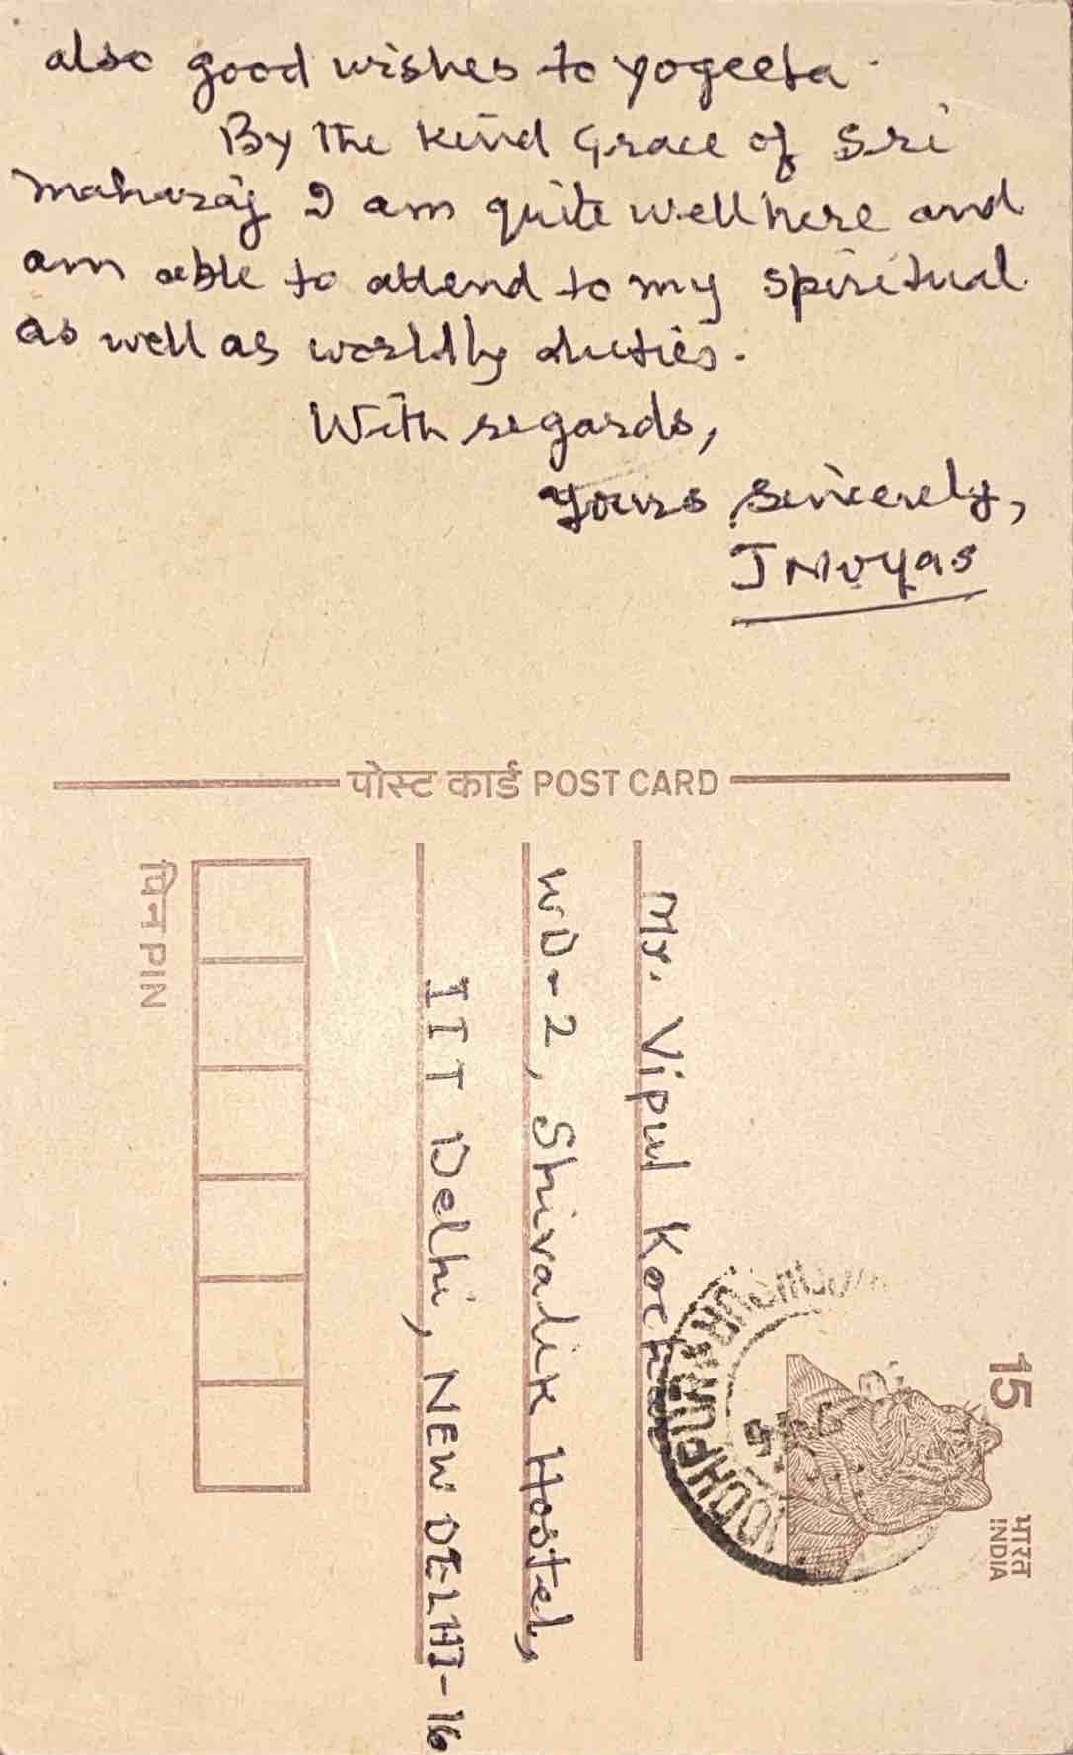 also good wishes to yogeeta.
By the kind Grace of Sri
maharaj I am quite well here and
am able to attend to my spiritual
as well as worldly duties.
With regards,
Yours sincerely,
J N Vyas
पोस्ट कार्ड POST CARD
15
भारत
INDIA
JODHPUR
Mr. Vipul Koch
WD-2, Shivalik Hostel,
IIT Delhi, NEW DELHI-16
पिन PIN